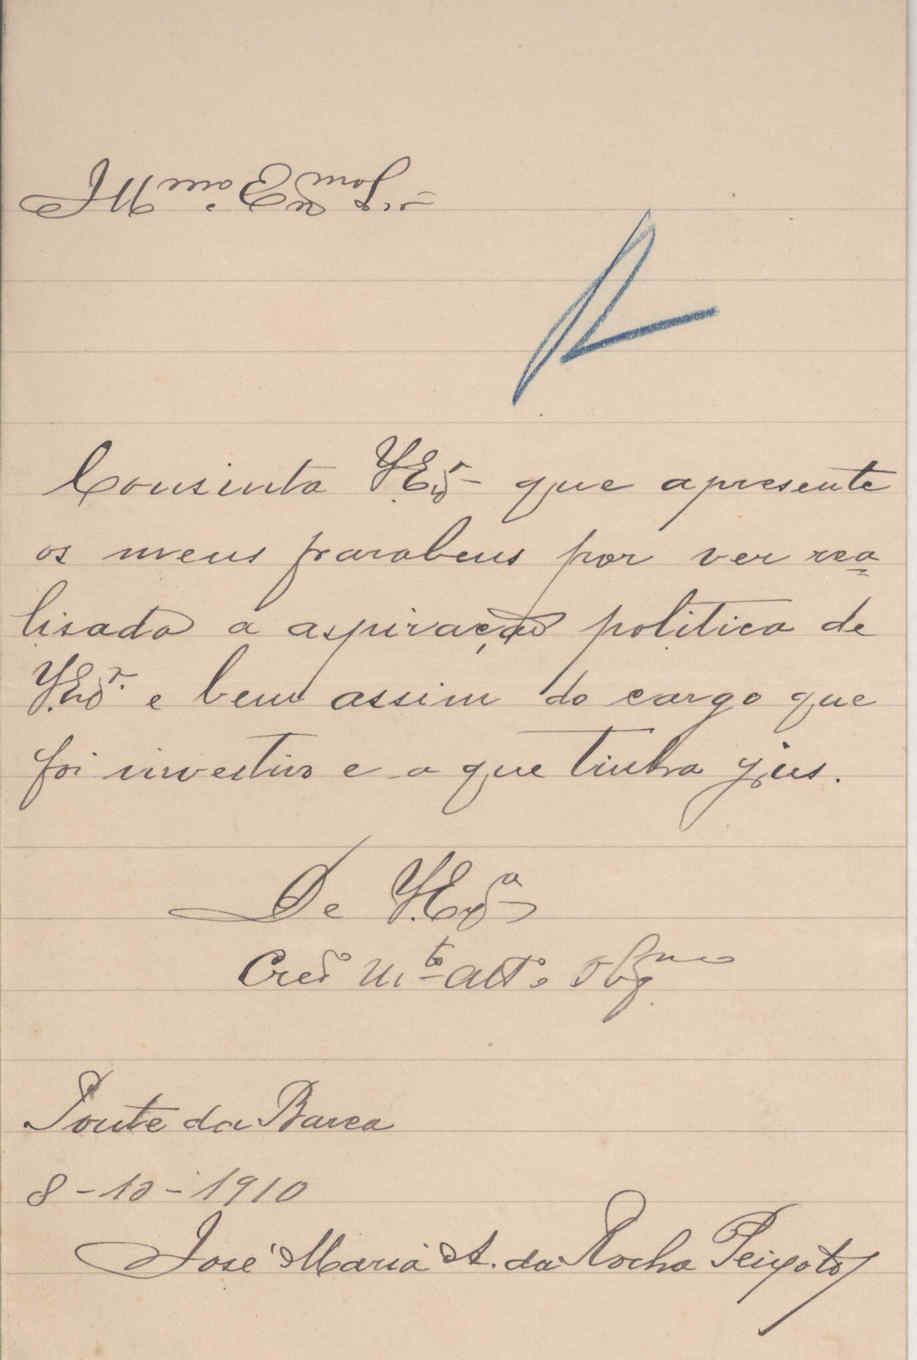 Illmo. Exmo Snr
Consinta V. Exa que apresente
os meus parabens por ver rea=
lisada a aspiração politica de
V. Exa. e bem assim do cargo que
foi investido e a que tinha jus.
De V. Exa
Credo Mto Atto Obgmo
Ponte da Barca
8-10-1910
José Maria A. da Rocha Peixoto